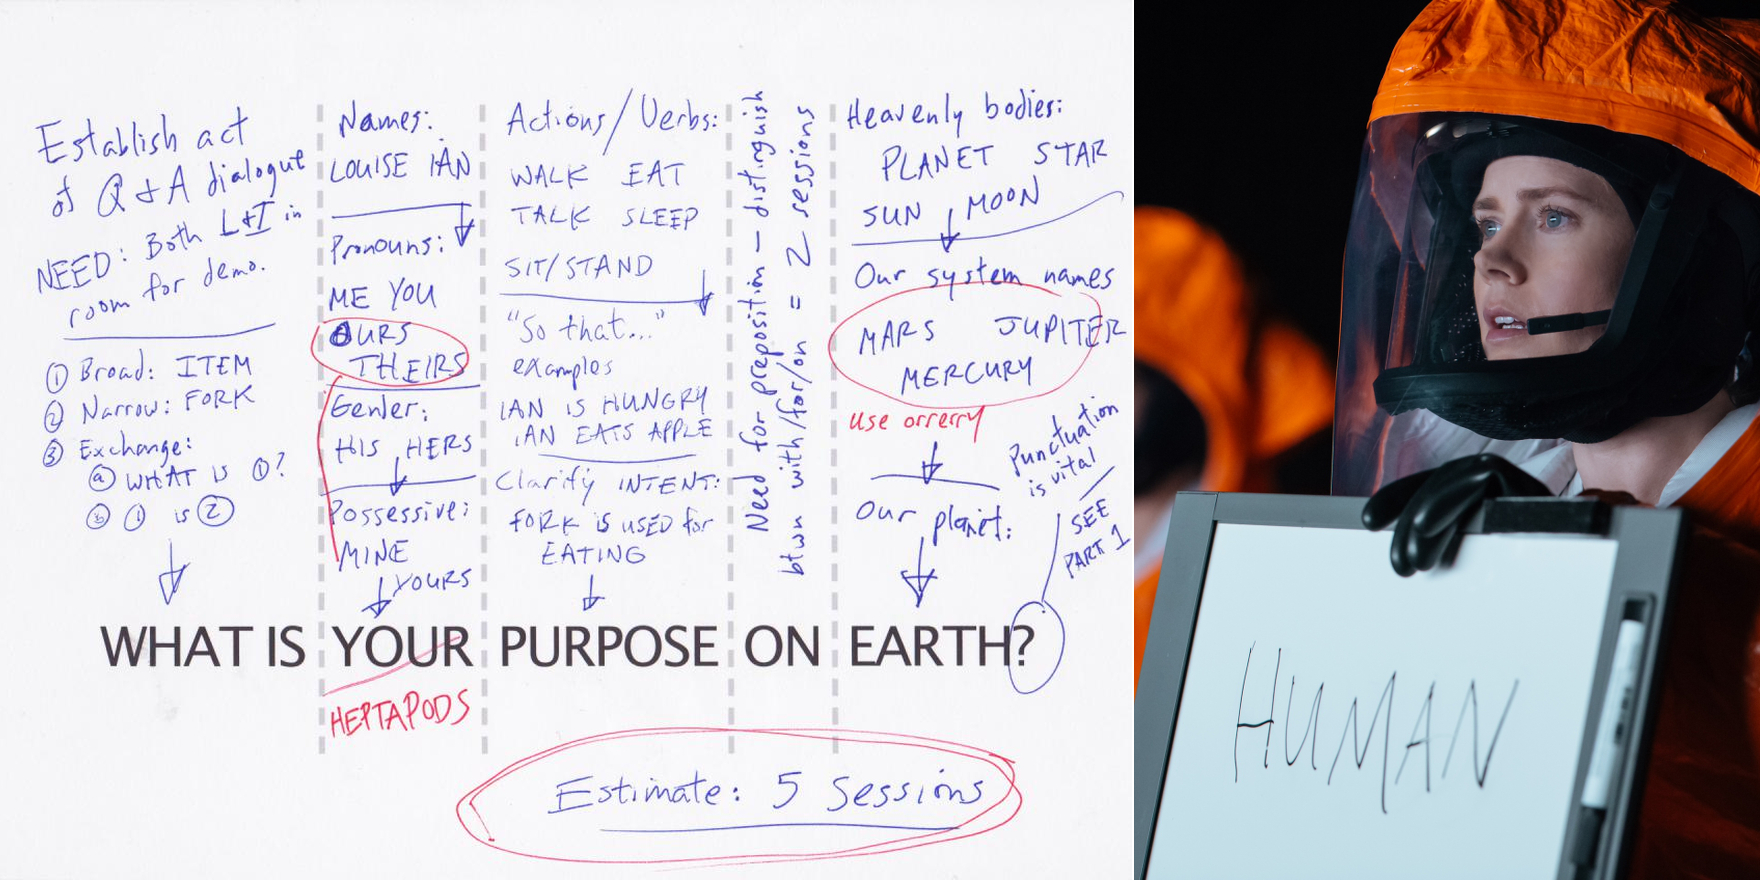 Establish act
of Q & A dialogue
NEED: Both L&I in
room for demo.
① Broad: ITEM
② Narrow: FORK
③ Exchange:
ⓐ WHAT IS ①?
ⓑ ① is ②
Names:
LOUISE IAN
Pronouns:
ME YOU
OURS
THEIRS
Gender:
HIS HERS
Possessive:
MINE
YOURS
Actions/Verbs:
WALK EAT
TALK SLEEP
SIT/STAND
"So that..."
examples
IAN IS HUNGRY
IAN EATS APPLE
Clarify INTENT:
FORK IS USED for
EATING
Need for preposition - distinguish
btwn with/for/on = 2 sessions
Heavenly bodies:
PLANET STAR
SUN MOON
Our system names
MARS JUPITER
MERCURY
use orrery
Our planet:
Punctuation
is vital
SEE
PART 1
WHAT IS YOUR PURPOSE ON EARTH?
HEPTAPODS
Estimate: 5 Sessions
HUMAN